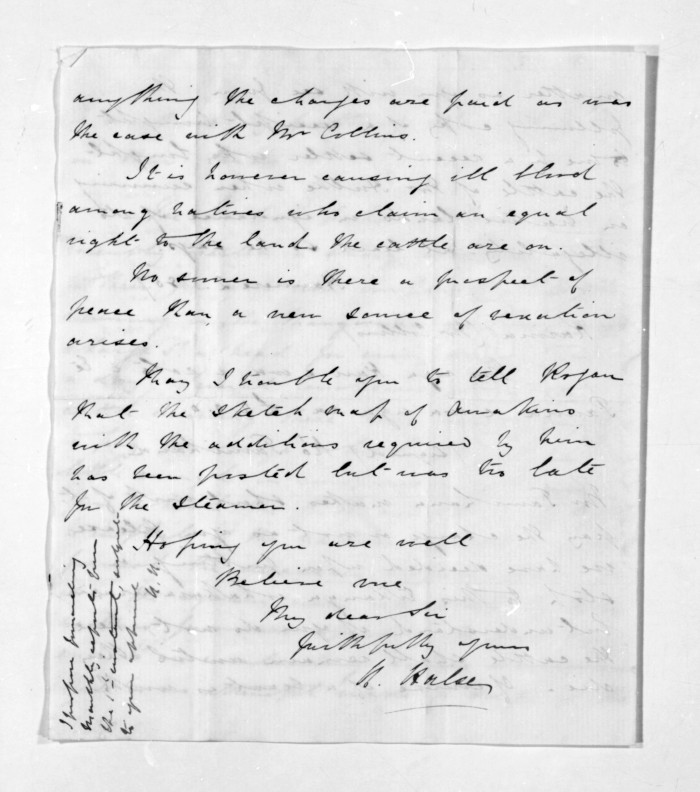 anything the charges are paid as was
the case with Mr Collins.
It is however causing ill blood
among natives who claim an equal
right to the land the cattle are on.
No sooner is there a prospect of
peace than a new source of vexation
arises.
May I trouble you to tell Rogan
that the sketch map of
with the additions required by him
has been posted but was too late
for the steamer.
Hoping you are well
Believe me
My dear Sir
faithfully yours
H. Halse
I
monthly reports from
the instant, subject
to your approval
H. H.